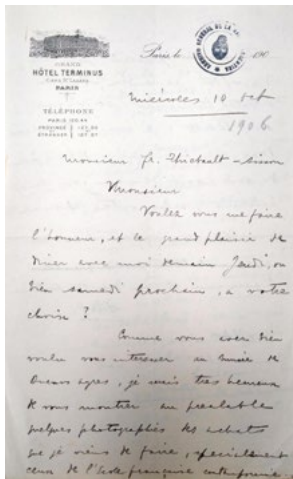 GRAND
HÔTEL TERMINUS
PARIS
Paris le 190
TÉLÉPHONE
PARIS
PROVINCE
ETRANGER
miércoles 10 oct
1906
Monsieur Fr. Thiebault-Sisson
Monsieur
Voulez vous me faire
l'honneur, et le grand plaisir de
diner avec moi demain Jeudi, ou
bien samedi prochain, a votre
choix ?
Comme vous avez bien
voulu vous interesser au musée de
Buenos ayres, je serais tres heureux
de vous montrer au prealable
quelques photographies des achats
que je viens de faire, specialement
ceux de l'école française contemporaine.